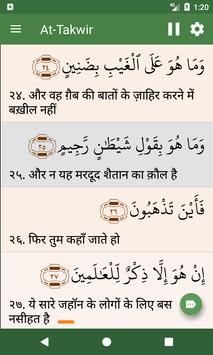 1:20
At-Takwir
وَمَا هُوَ عَلَى الْغَيْبِ بِضَنِينٍ ٢٤
२४. और वह ग़ैब की बातों के ज़ाहिर करने में
बख़ील नहीं
وَمَا هُوَ بِقَوْلِ شَيْطَٰنٍ رَّجِيمٍ ٢٥
२५. और न यह मरदूद शैतान का क़ौल है
فَأَيْنَ تَذْهَبُونَ ٢٦
२६. फिर तुम कहाँ जाते हो
إِنْ هُوَ إِلَّا ذِكْرٌ لِّلْعَٰلَمِينَ ٢٧
२७. ये सारे जहॉन के लोगों के लिए बस
नसीहत है